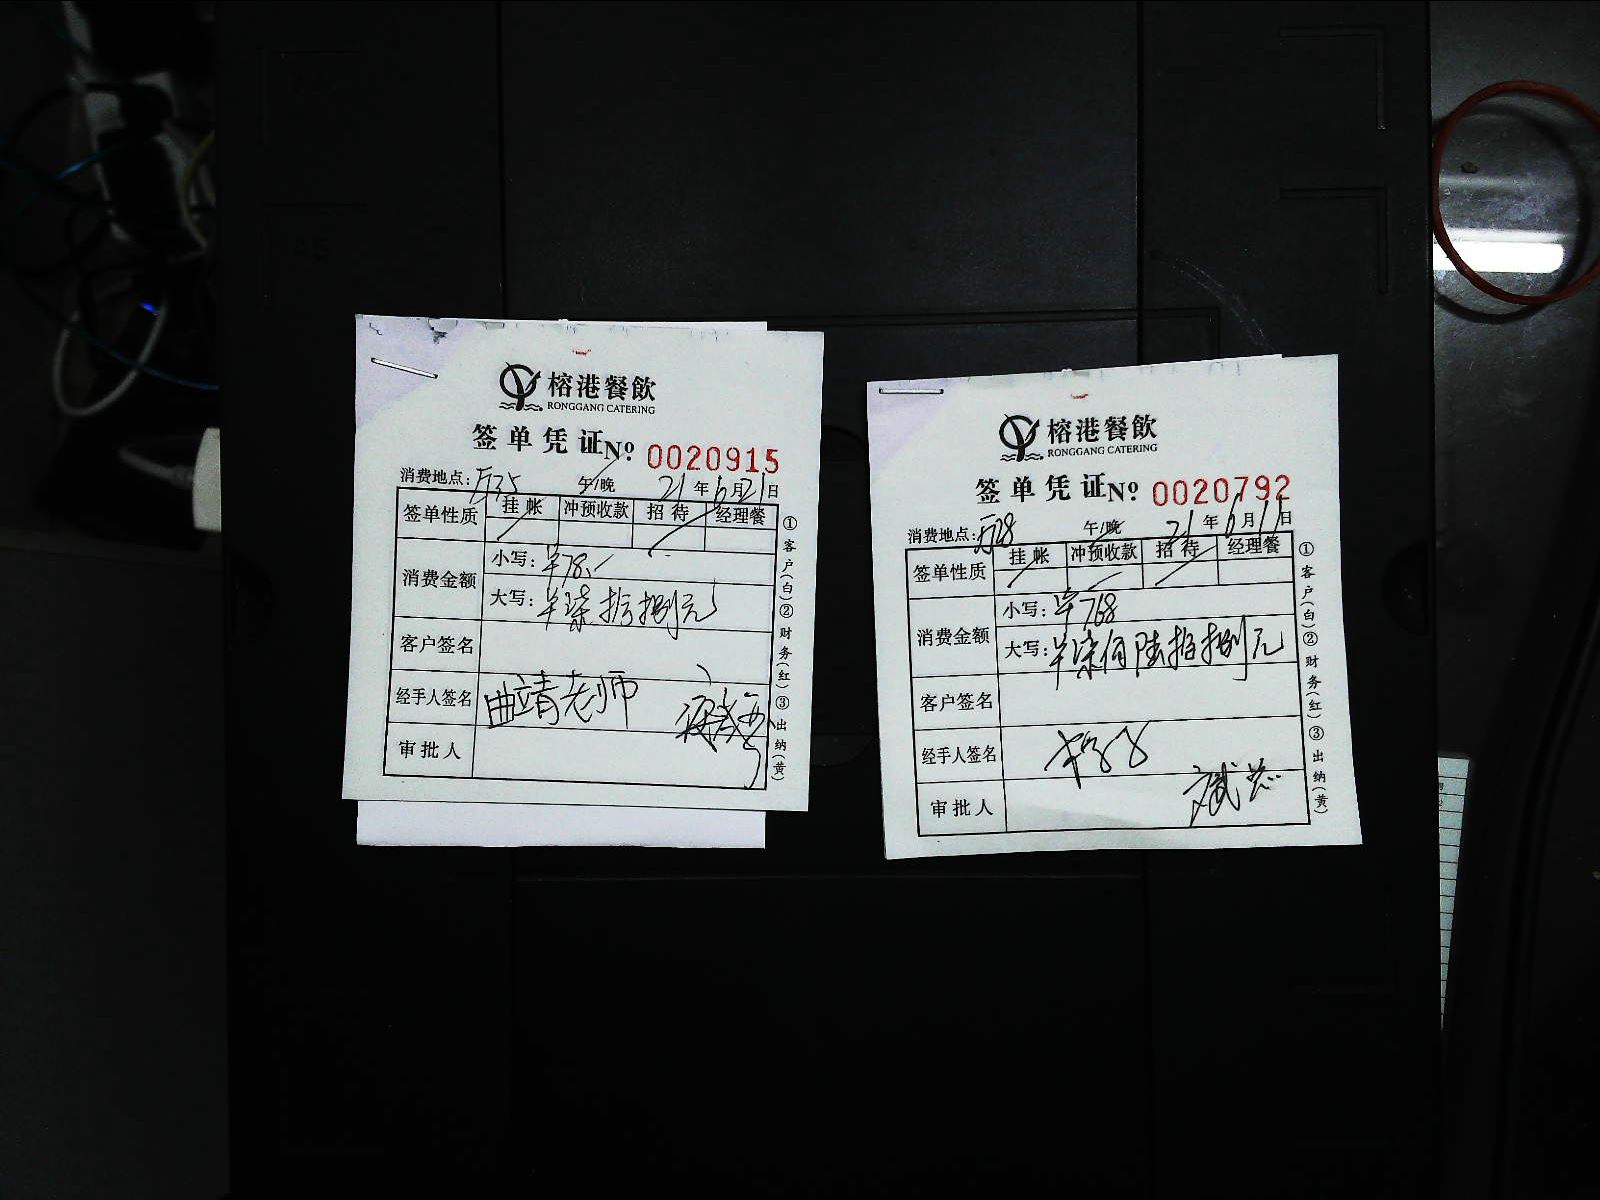 榕港餐飲
RONGGANG CATERING
签单凭证 No 0020915
消费地点: 午/晚 21年6月21日
签单性质 挂帐 冲预收款 招待 经理餐
消费金额 小写: ¥78.
大写: 柒拾捌元
客户签名
经手人签名 曲靖老师
审批人
①客户(白)②财务(红)③出纳(黄)
榕港餐飲
RONGGANG CATERING
签单凭证 No 0020792
消费地点: 午/晚 21年6月11日
签单性质 挂帐 冲预收款 招待 经理餐
消费金额 小写: ¥768
大写: 柒佰陆拾捌元
客户签名
经手人签名
审批人
①客户(白)②财务(红)③出纳(黄)